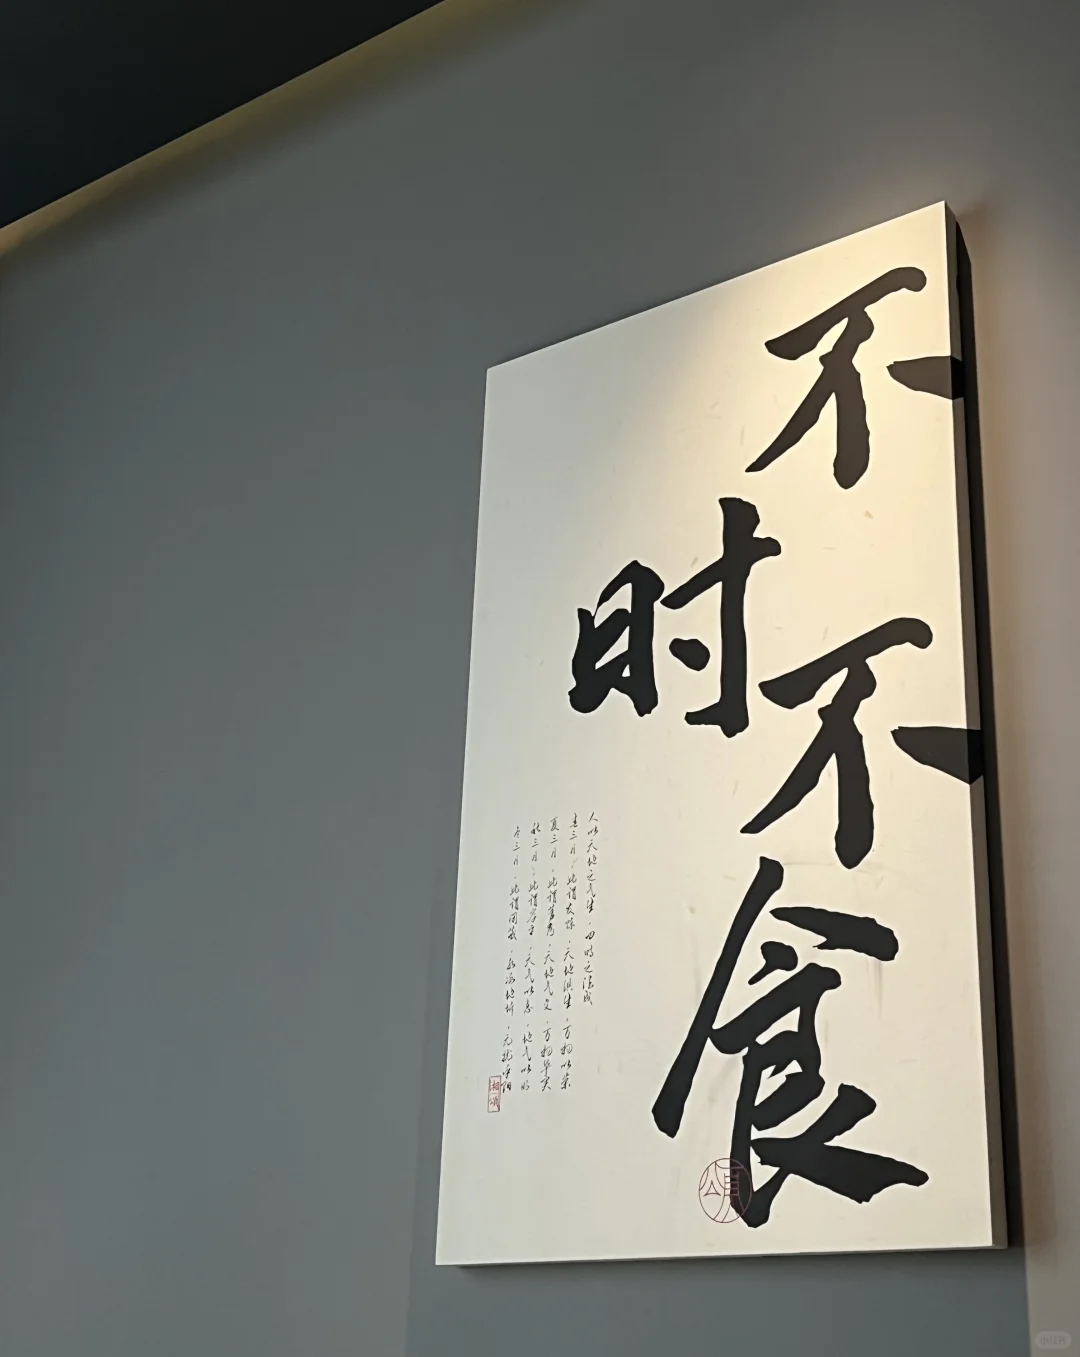 不时不食
人以天地之气生，四时之法成
春三月，此谓发陈，天地俱生，万物以荣
夏三月，此谓蕃秀，天地气交，万物华实
秋三月，此谓容平，天气以急，地气以明
冬三月，此谓闭藏，水冰地坼，无扰乎阳
湘颂
颂
小红书